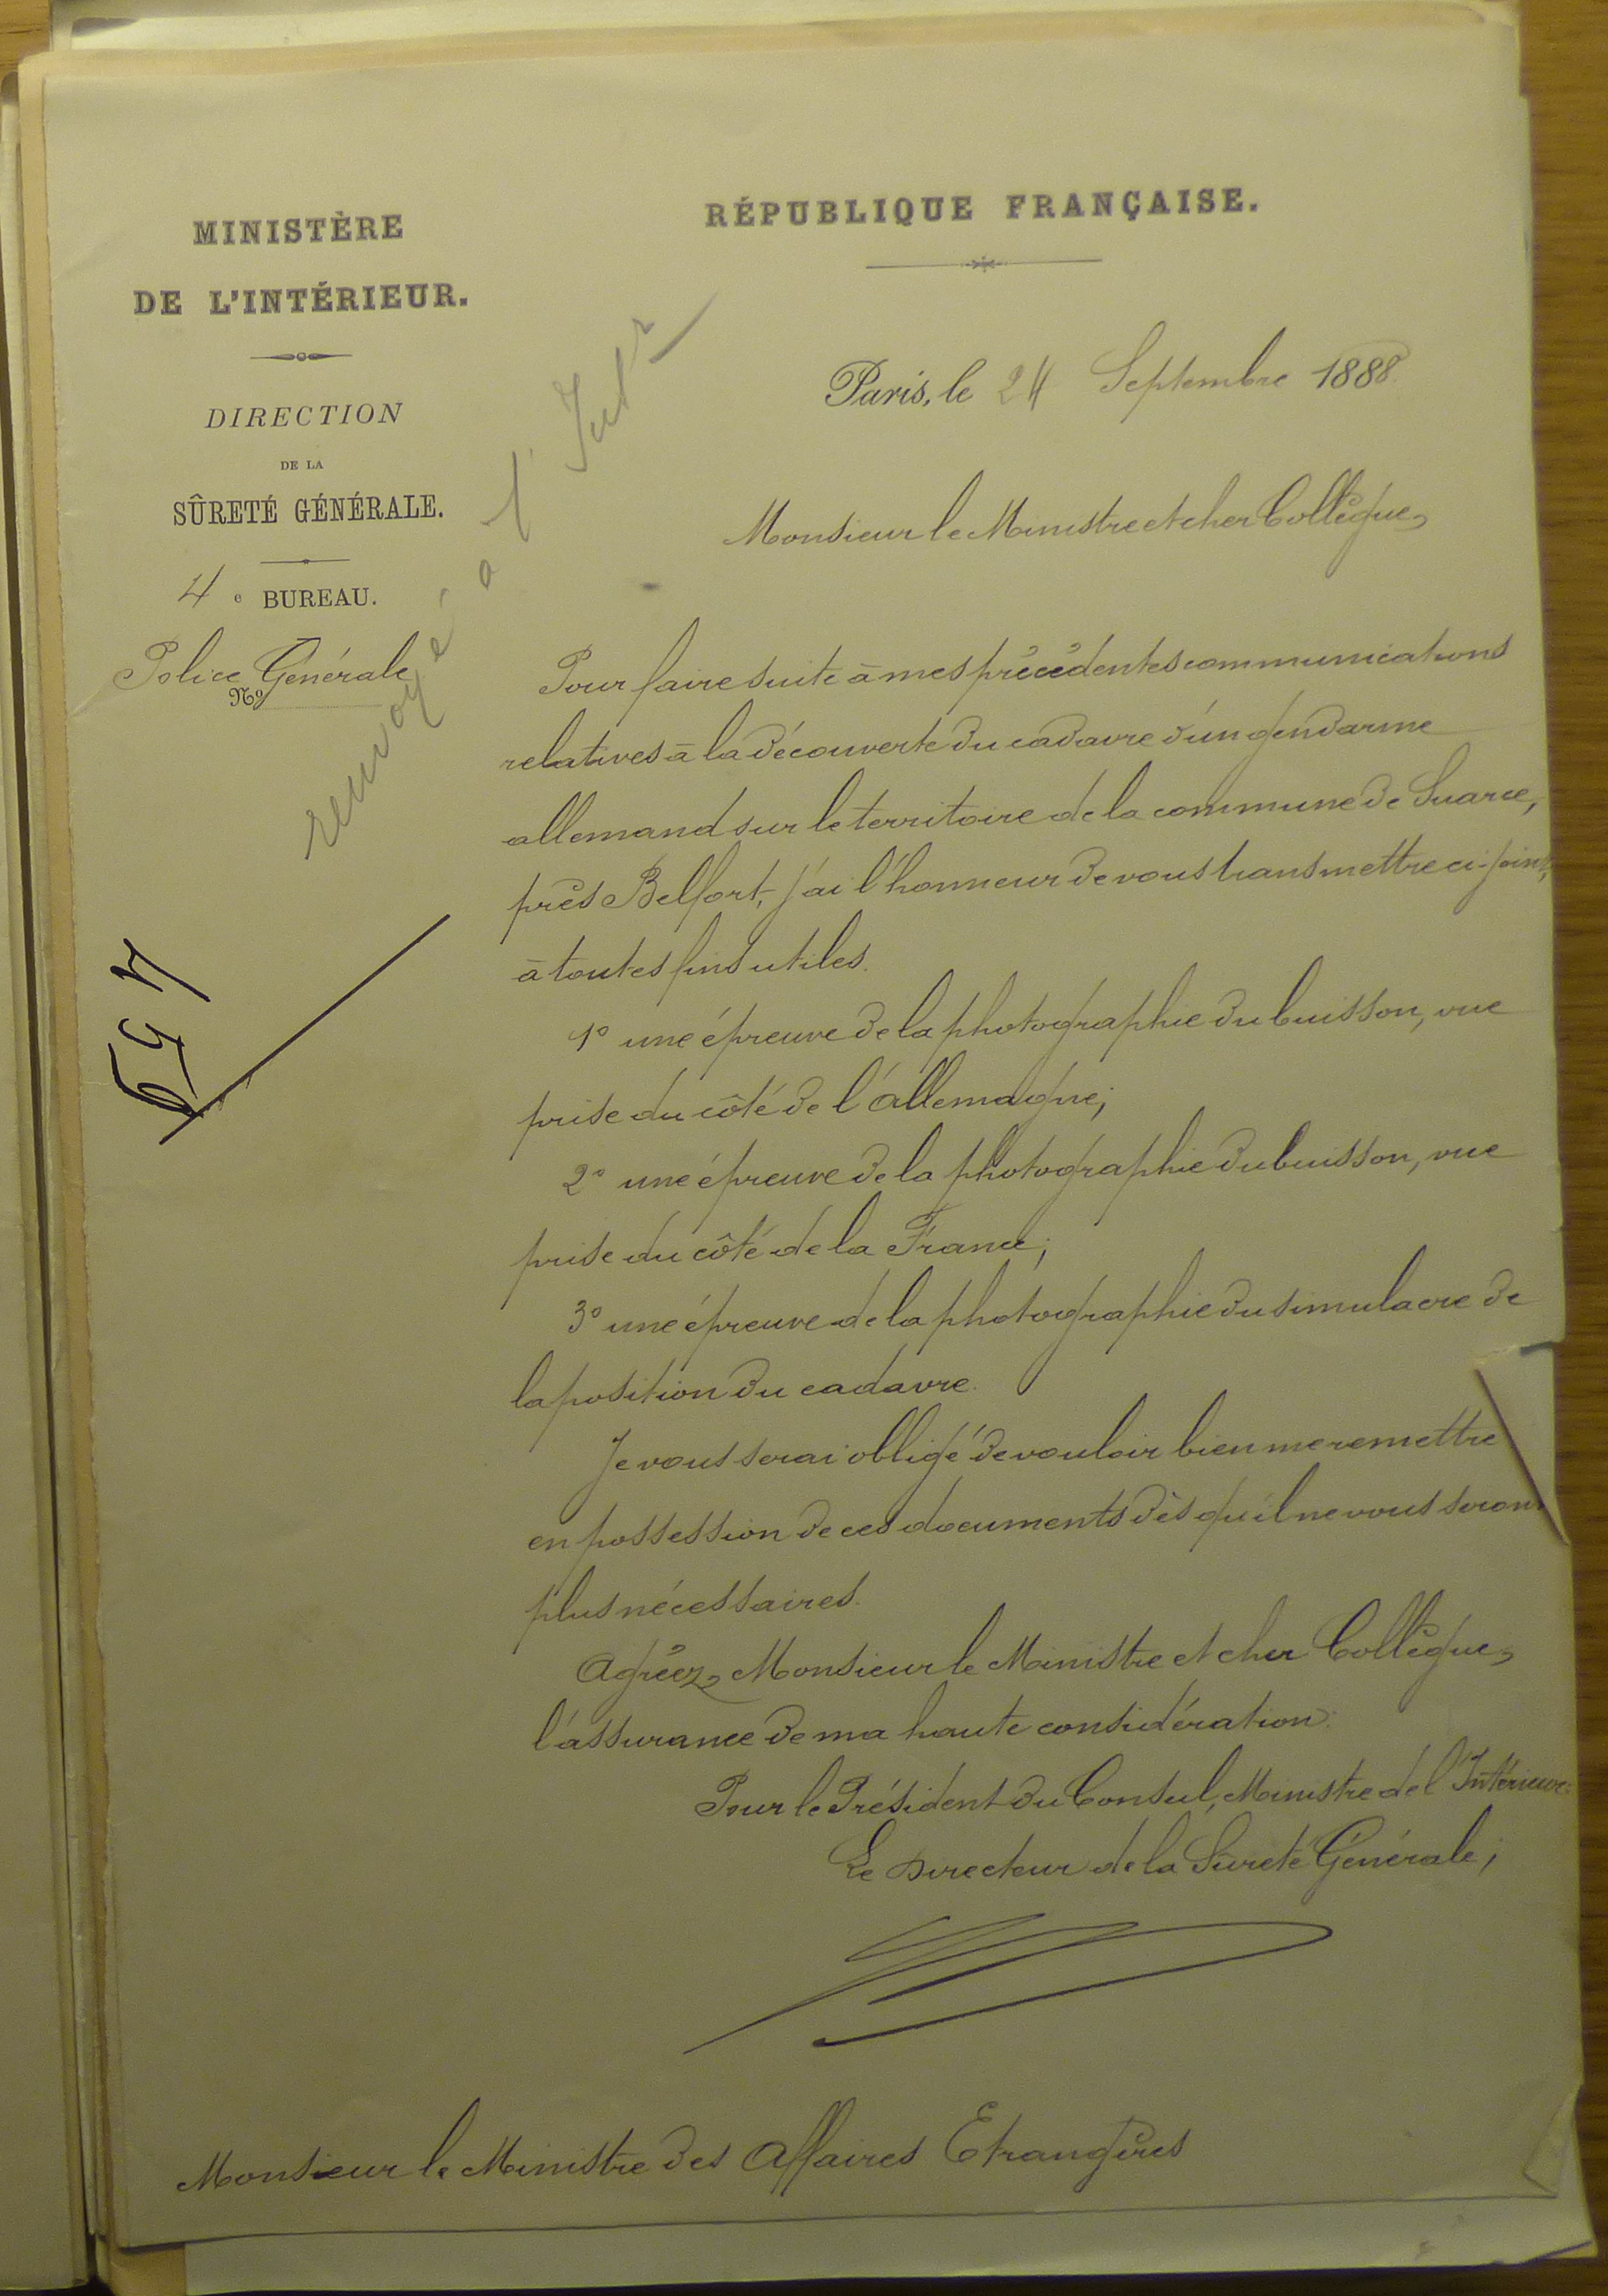 MINISTÈRE
DE L'INTÉRIEUR.
DIRECTION
DE LA
SÛRETÉ GÉNÉRALE.
4e BUREAU.
Police Générale
No
renvoyé à l'Intr
RÉPUBLIQUE FRANÇAISE.
Paris, le 24 Septembre 1888.
Monsieur le Ministre et cher Collègue,
Pour faire suite à mes précédentes communications
relatives à la découverte du cadavre d'un gendarme
allemand sur le territoire de la commune de Suarce,
près Belfort, j'ai l'honneur de vous transmettre ci-joint,
à toutes fins utiles.
1o une épreuve de la photographie du buisson, vue
prise du côté de l'Allemagne;
2o une épreuve de la photographie du buisson, vue
prise du côté de la France;
3o une épreuve de la photographie du simulacre de
la position du cadavre.
Je vous serai obligé de vouloir bien me remettre
en possession de ces documents dès qu'il ne vous seront
plus nécessaires.
Agréez, Monsieur le Ministre et cher Collègue,
l'assurance de ma haute considération.
Pour le Président du Conseil, Ministre de l'Intérieur:
Le Directeur de la Sûreté Générale;
Monsieur le Ministre des Affaires Etrangères